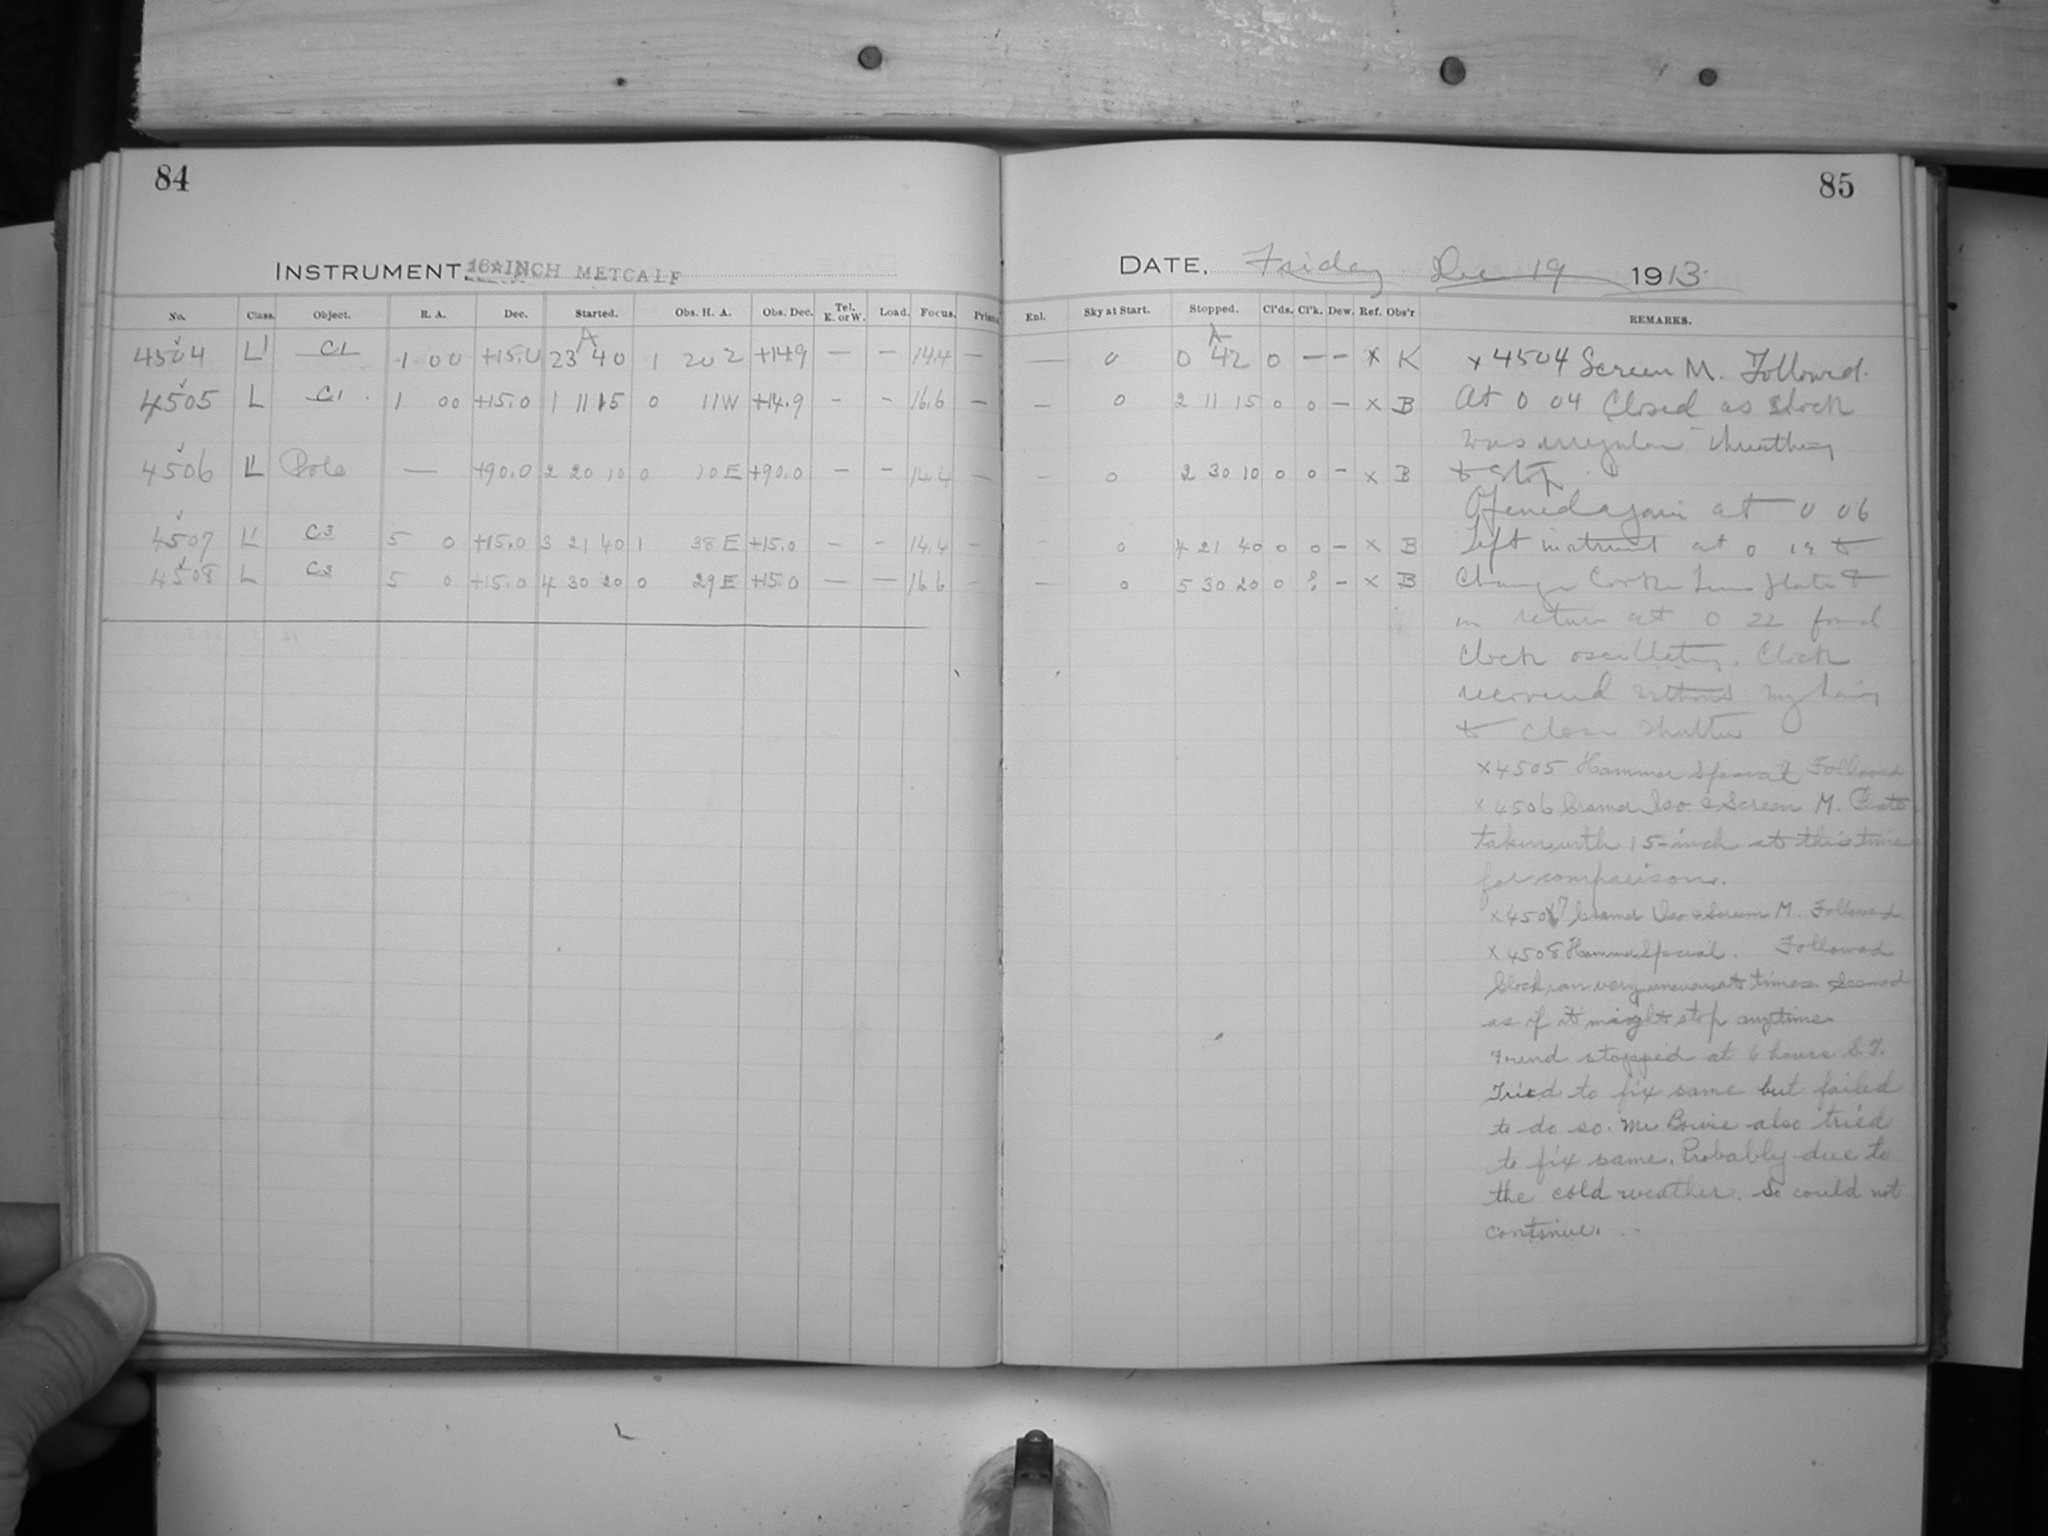 84
INSTRUMENT. 16 INCH METCALF
No. Class. Object. R. A. Dec. Started. Obs. H. A. Obs. Dec. Tel. E. or W. Load. Focus. Prism
A
4504 L' C1 1 00 +15.0 23 40 1 20 2 +14.9 — — 14.4 —
4505 L C1 1 00 +15.0 1 11 15 0 11W +14.9 - - 16.6 —
4506 L' Pole — +90.0 2 20 10 0 10 E +90.0 - - 14.4 —
4507 L' C3 5 0 +15.0 3 21 40 1 38 E +15.0 — - 14.4 -
4508 L C3 5 0 +15.0 4 30 20 0 29 E +15.0 — — 16.6 -
85
DATE. Friday Dec 19 1913.
Enl. Sky at Start. Stopped. Cl'ds. Cl'k. Dew. Ref. Obs'r REMARKS.
A
— 0 0 42 0 — — x K
— 0 2 11 15 0 0 — x B
- 0 2 30 10 0 0 - x B
- 0 4 21 40 0 0 — x B
— 0 5 30 20 0 - x B
x 4504 Screen M. Followed.
At 0 04 Closed as clock
was irregular threatning
to stop.
Opened again at 0 06
Left instrument at 0 19 to
Change Cooke Lens plate &
on return at 0 22 found
clock oscillating. Clock
recovered without my having
to close shutter
x 4505 Hammer Special Followed
x 4506 Cramer Iso & Screen M. Plate
taken with 15-inch at this time
for comparison.
x 4507 Cramer Iso & Screen M. Followed.
x 4508 Hammer Special. Followed
Clock ran very uneven at times. Seemed
as if it might stop anytime
Found stopped at 6 hours S.T.
Tried to fix same but failed
to do so. Mr Bowie also tried
to fix same. Probably due to
the cold weather. So could not
continue.